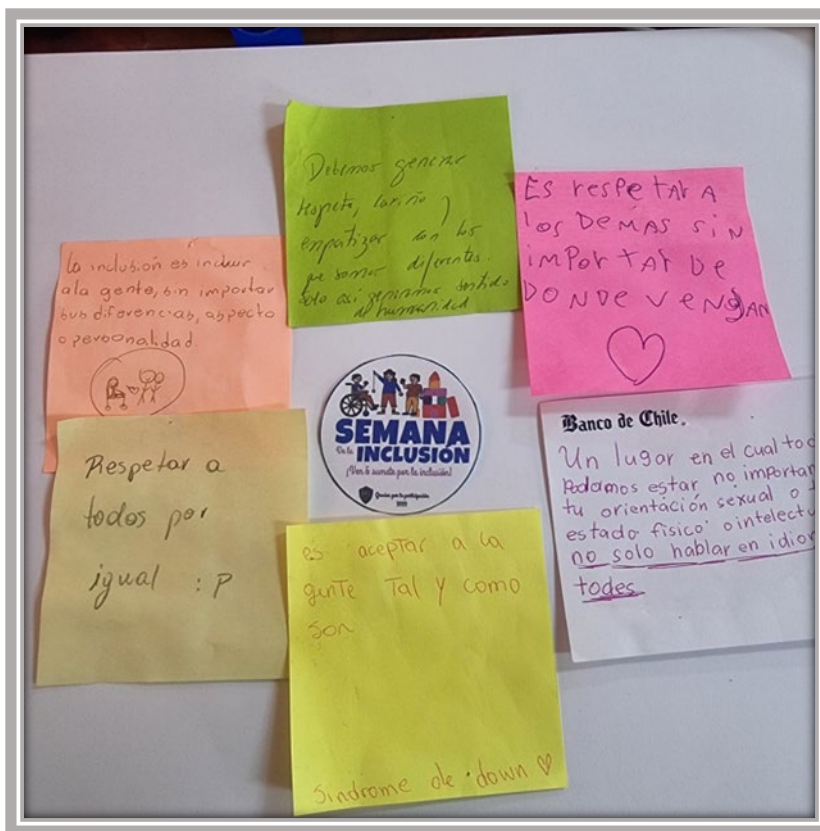 Debemos generar
respeto, cariño y
empatizar con los
que somos diferentes.
Solo así generamos sentido
de humanidad
Es respetar a
los demás sin
importar de
donde vengan
la inclusión es incluir
ala gente, sin importar
sus diferencias, aspecto
o personalidad.
SEMANA
De la INCLUSIÓN
¡Ven & sumate por la inclusión!
Gracias por tu participación
Banco de Chile.
Un lugar en el cual tod
podamos estar no importan
tu orientación sexual o
estado físico o intelectu
no solo hablar en idio
todes
Respetar a
todos por
igual : P
es aceptar a la
gente Tal y como
son
sindrome de down ♡